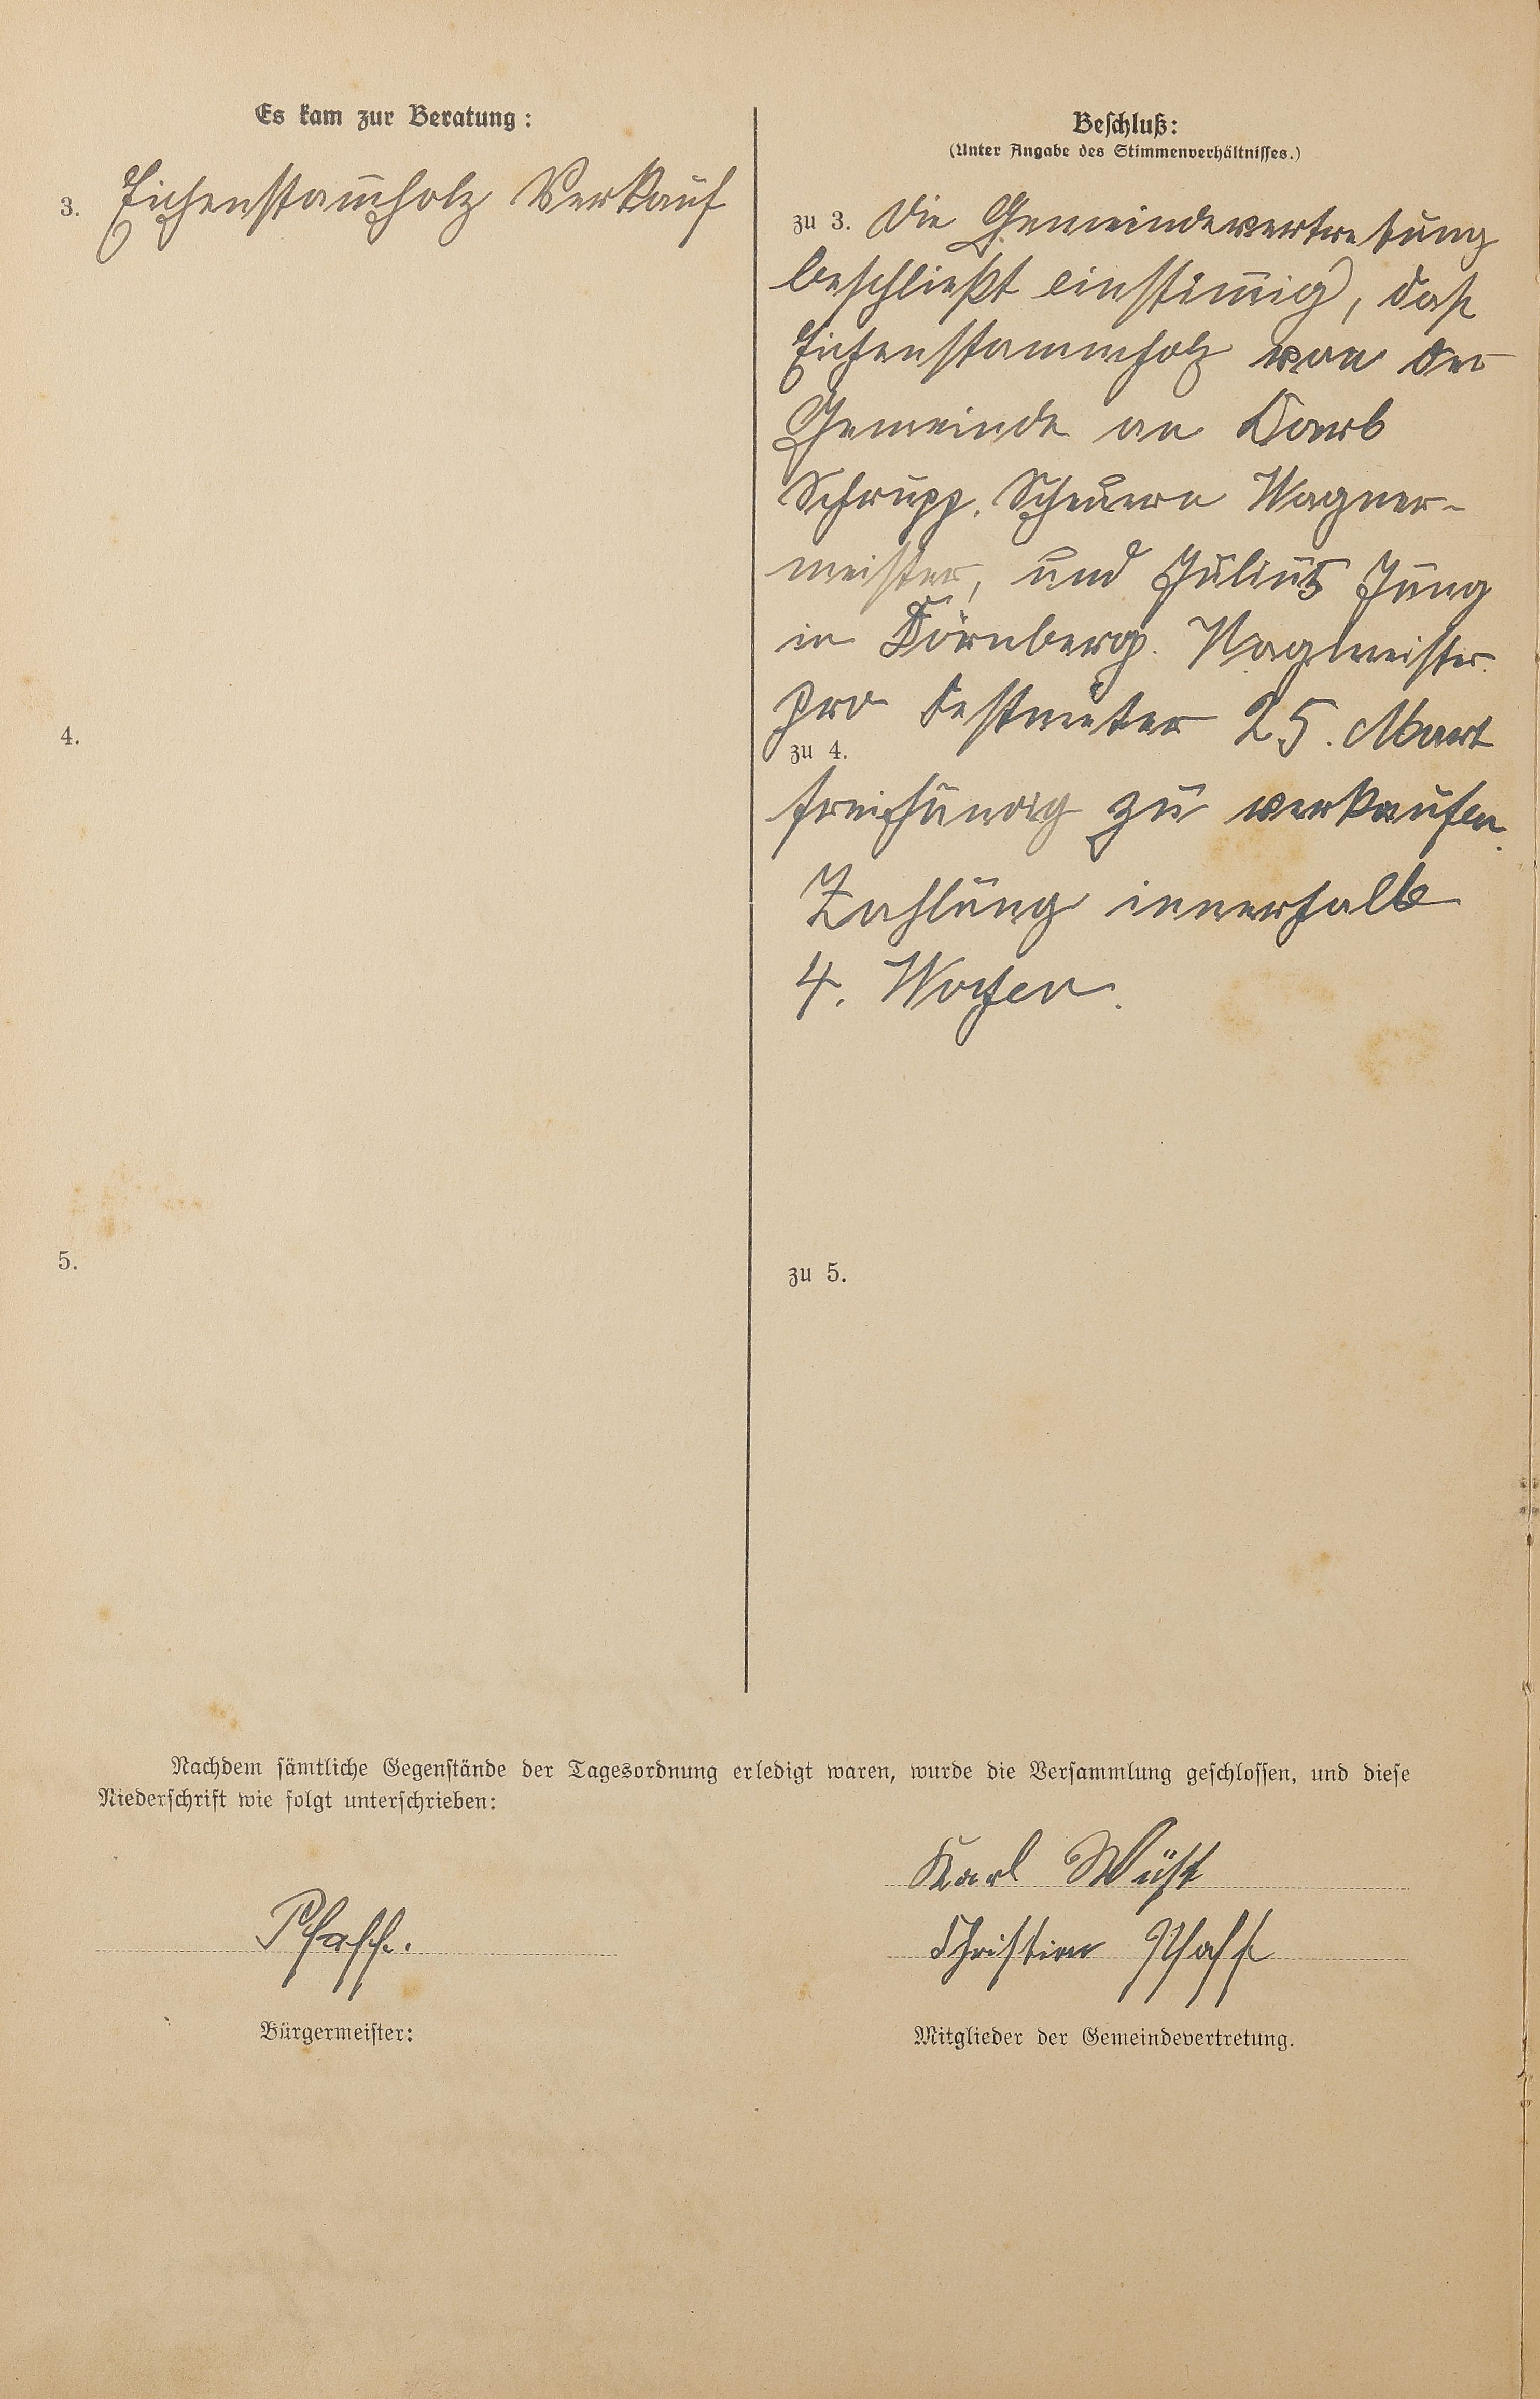 Es kam zur Beratung:
3. Eichenstam̅holz Verkauf
4.
5.
Beschluß:
(Unter Angabe des Stimmenverhältnisses.)
zu 3. Die Gemeindevertretung
beschließt einstim̅ig, daß
Eichenstammholz von der
Gemeinde an
Schrupp. Scheuern Wagner-
meister, und Julius Jung
in Dörnberg.
pro Festmeter 25. Mark
zu 4.
freihändig zu verkaufen.
Zahlung innerhalb
4. Wochen.
zu 5.
Nachdem sämtliche Gegenstände der Tagesordnung erledigt waren, wurde die Versammlung geschlossen, und diese
Niederschrift wie folgt unterschrieben:
Karl Wüst
Pfaff.
Christian Pfaff
Bürgermeister:
Mitglieder der Gemeindevertretung.